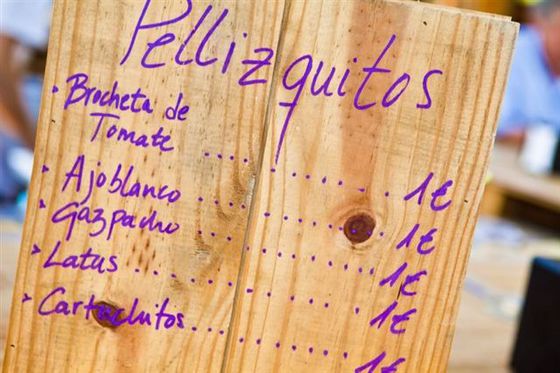 Pellizquitos
Brocheta de
Tomate ............ 1€
Ajoblanco ............ 1€
Gazpacho ............ 1€
Latus ............ 1€
Cartuchitos ............ 1€